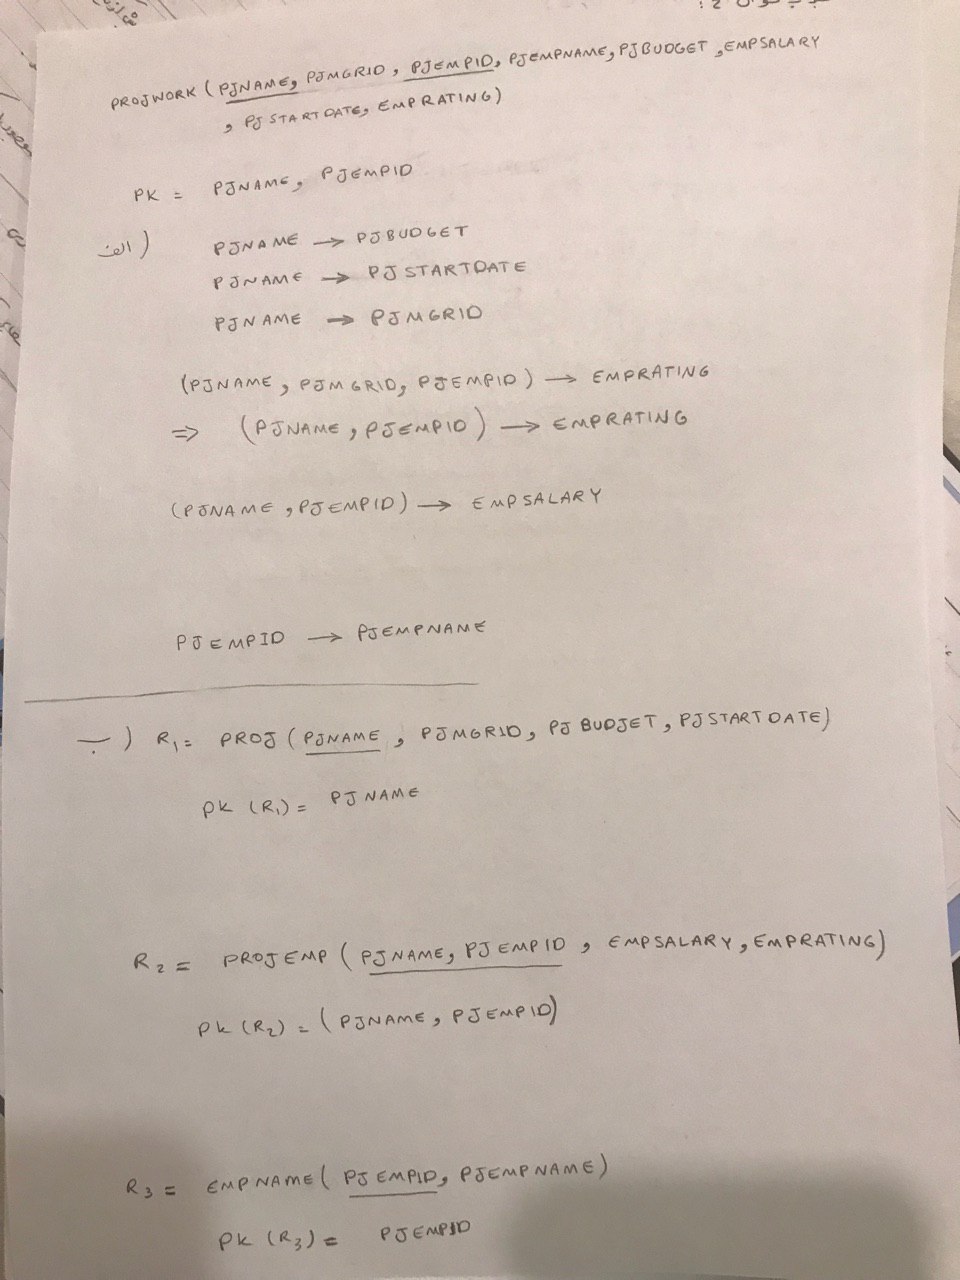 PROJWORK (PJNAME, PJMGRID, PJEMPID, PJEMPNAME, PJBUDGET, EMPSALARY
, PJSTARTDATE, EMPRATING)
PK = PJNAME, PJEMPID
الف) PJNAME → PJBUDGET
PJNAME → PJSTARTDATE
PJNAME → PJMGRID
(PJNAME, PJMGRID, PJEMPID) → EMPRATING
⇒ (PJNAME, PJEMPID) → EMPRATING
(PJNAME, PJEMPID) → EMPSALARY
PJEMPID → PJEMPNAME
ب) R1 = PROJ (PJNAME, PJMGRID, PJBUDJET, PJSTARTDATE)
PK (R1) = PJNAME
R2 = PROJEMP (PJNAME, PJEMPID, EMPSALARY, EMPRATING)
PK (R2) = (PJNAME, PJEMPID)
R3 = EMPNAME (PJEMPID, PJEMPNAME)
PK (R3) = PJEMPID